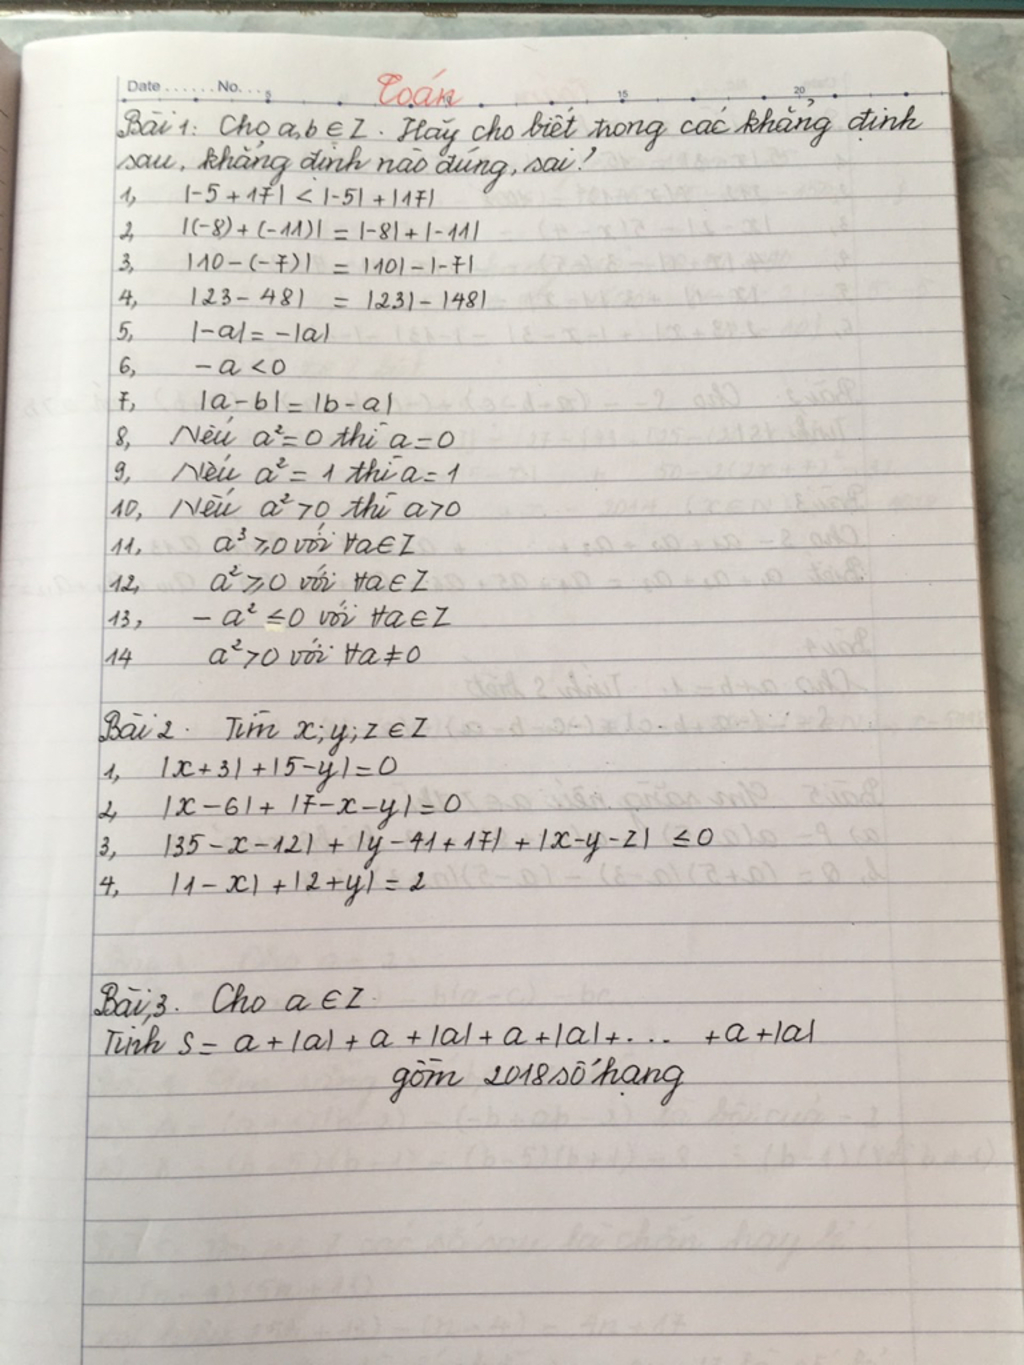 Date ...... No. ... 5 15 20
Toán
Bài 1: Cho a,b ∈ Z. Hãy cho biết trong các khẳng định
sau, khẳng định nào đúng, sai?
1, |-5 + 17| < |-5| + |17|
2, |(-8) + (-11)| = |-8| + |-11|
3, |10 - (-7)| = |10| - |-7|
4, |23 - 48| = |23| - |48|
5, |-a| = -|a|
6, -a < 0
7, |a-b| = |b-a|
8, Nếu a² = 0 thì a = 0
9, Nếu a² = 1 thì a = 1
10, Nếu a² > 0 thì a > 0
11, a³ ⩾ 0 với ∀a ∈ Z
12, a² ⩾ 0 với ∀a ∈ Z
13, - a² ≤ 0 với ∀a ∈ Z
14 a² > 0 với ∀a ≠ 0
Bài 2. Tìm x; y; z ∈ Z
1, |x+3| + |5-y| = 0
2, |x-6| + |7-x-y| = 0
3, |35-x-12| + |y-41+17| + |x-y-z| ≤ 0
4, |1-x| + |2+y| = 2
Bài 3. Cho a ∈ Z.
Tính S = a + |a| + a + |a| + a + |a| + ... + a + |a|
gồm 2018 số hạng